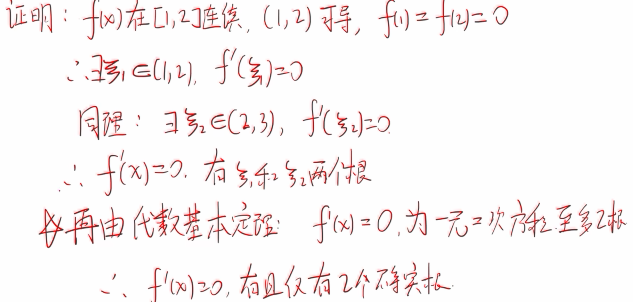 证明: f(x)在[1,2]连续, (1,2)可导, f(1)=f(2)=0
∴∃ξ₁∈(1,2), f'(ξ₁)=0
同理: ∃ξ₂∈(2,3), f'(ξ₂)=0
∴ f'(x)=0. 有ξ₁和ξ₂两个根
再由代数基本定理: f'(x)=0, 为一元二次方程至多2根
∴ f'(x)=0, 有且仅有2个不等实根.